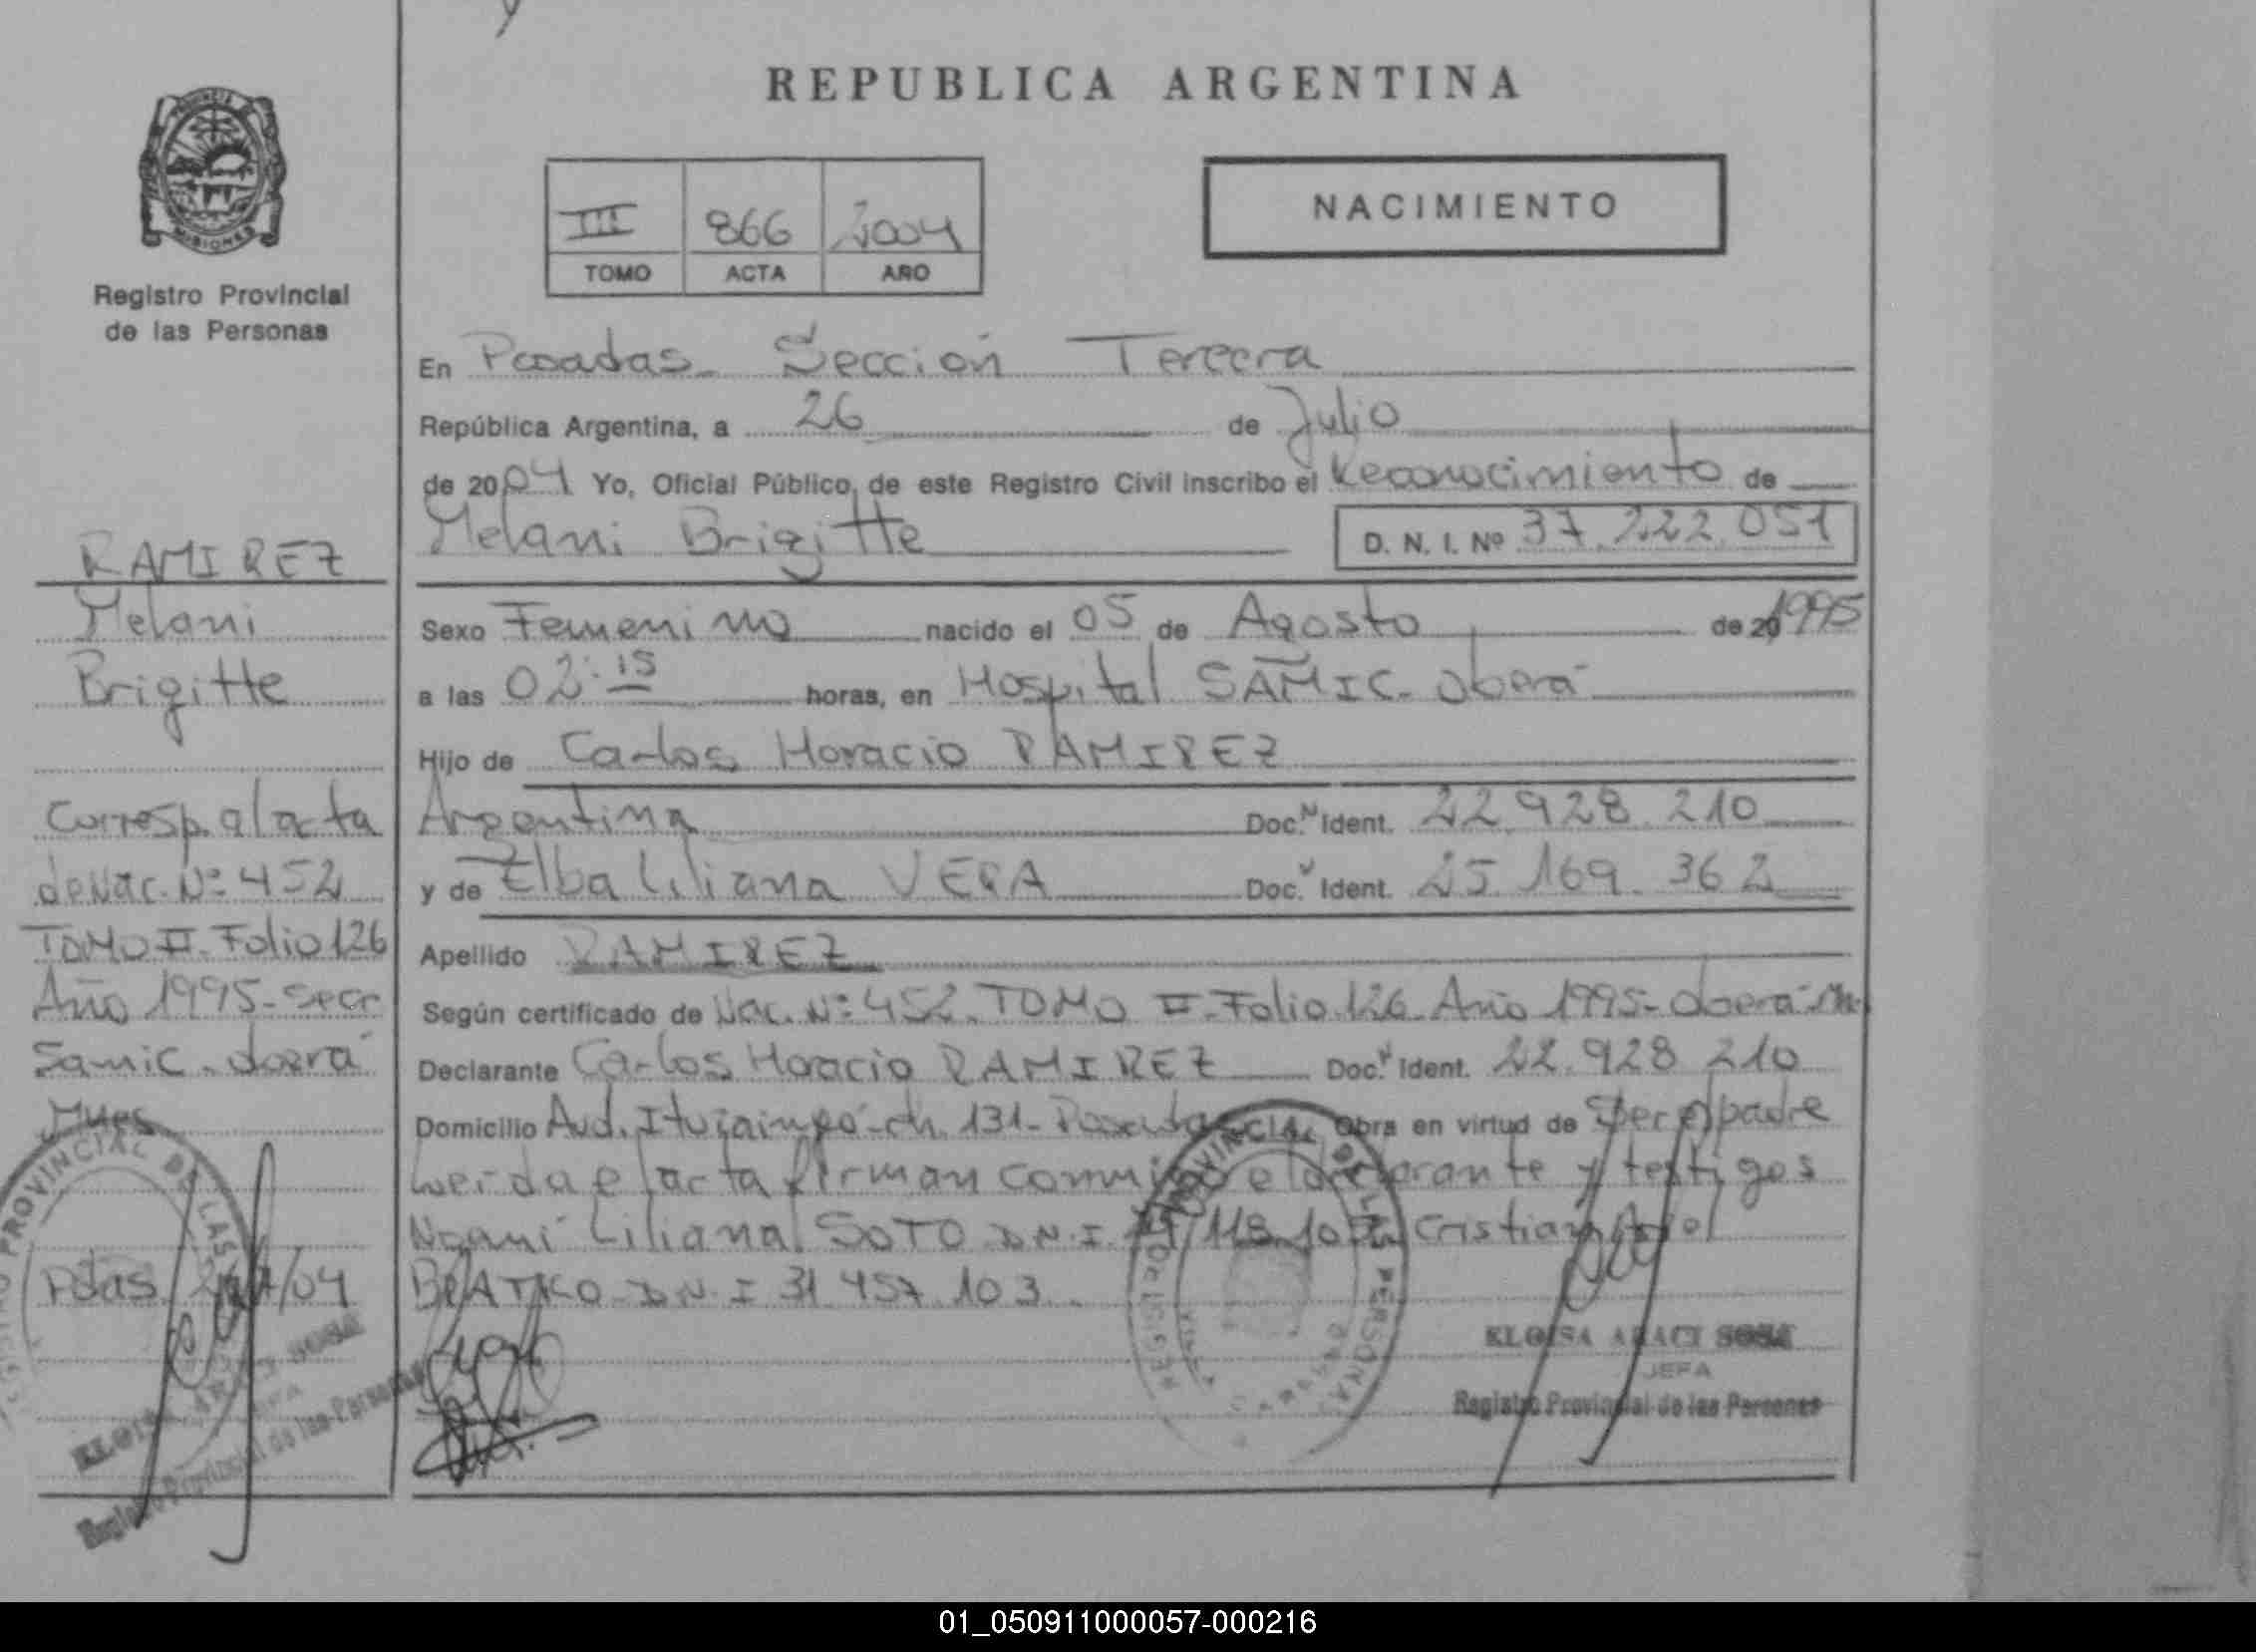 REPUBLICA ARGENTINA
PROVINCIA DE
MISIONES
Registro Provincial
de las Personas
III 866 2004
TOMO ACTA AÑO
NACIMIENTO
En Posadas - Sección Tercera
República Argentina, a 26 de Julio
de 2004 Yo, Oficial Público, de este Registro Civil inscribo el Reconocimiento de
Melani Brigitte D. N. I. Nº 37.222.051
Sexo Femenino nacido el 05 de Agosto de 20 1995
a las 02:15 horas, en Hospital SAMIC - Oberá
Hijo de Carlos Horacio RAMIREZ
Argentina Doc. Ident. 22.928.210
y de Elba Liliana VERA Doc. Ident. 25.169.362
Apellido RAMIREZ
Según certificado de Nac. Nº 452 - TOMO II - Folio 126 - Año 1995 - Oberá - Mn.
Declarante Carlos Horacio RAMIREZ Doc. Ident. 22.928.210
Domicilio Avd. Ituzaingó - ch. 131 - Posadas Obra en virtud de Ser el padre
Leida el acta firman conmigo el declarante y testigos
Noami Liliana SOTO D.N.I. 118.10 Cristian
D.N.I 31.457.103
ELOISA ARACI SOSA
JEFA
Registro Provincial de las Personas
RAMIREZ
Melani
Brigitte
Corresp. al acta
de Nac. Nº 452
TOMO II - Folio 126
Año 1995 - Secc
Samic - Oberá
Mnes
Pdas /04
PROVINCIAL DE LAS
ELOISA ARACI SOSA
JEFA
Registro Provincial de las Personas
PROVINCIAL DE LAS PERSONAS
01_050911000057-000216